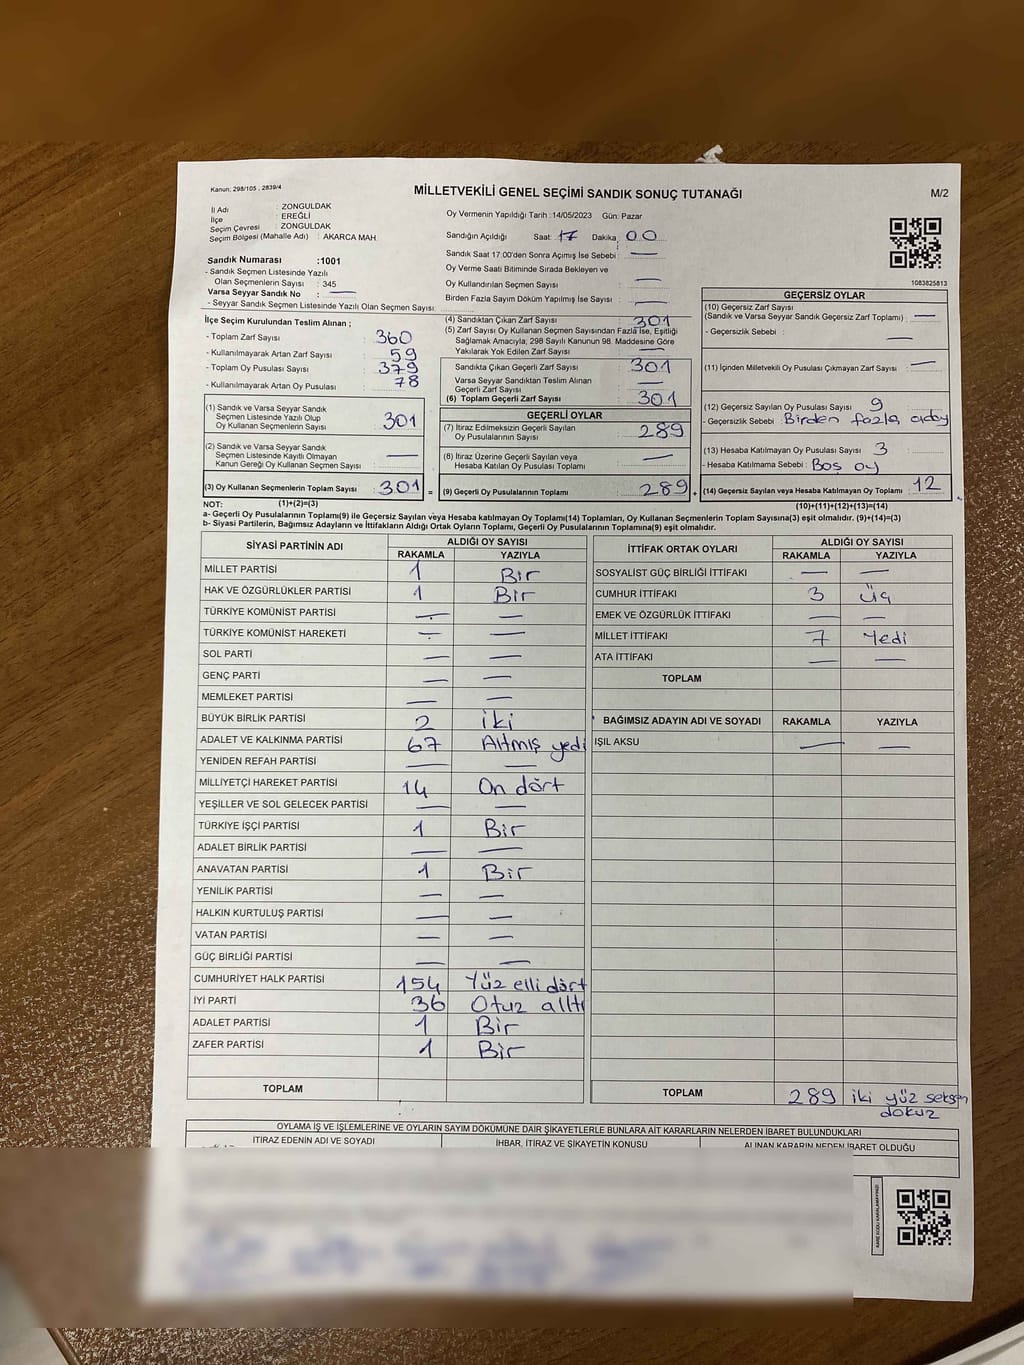 Kanun: 298/105 , 2839/4
MİLLETVEKİLİ GENEL SEÇİMİ SANDIK SONUÇ TUTANAĞI
M/2
İl Adı : ZONGULDAK
İlçe : EREĞLİ
Seçim Çevresi : ZONGULDAK
Seçim Bölgesi (Mahalle Adı) : AKARCA MAH.
Sandık Numarası :1001
- Sandık Seçmen Listesinde Yazılı
Olan Seçmenlerin Sayısı : 345
Varsa Seyyar Sandık No : —
- Seyyar Sandık Seçmen Listesinde Yazılı Olan Seçmen Sayısı:
Oy Vermenin Yapıldığı Tarih :14/05/2023 Gün: Pazar
Sandığın Açıldığı Saat: 17 Dakika: 00
Sandık Saat 17:00'den Sonra Açımış İse Sebebi: —
Oy Verme Saati Bitiminde Sırada Bekleyen ve
Oy Kullandırılan Seçmen Sayısı —
Birden Fazla Sayım Döküm Yapılmış İse Sayısı —
1083825813
İlçe Seçim Kurulundan Teslim Alınan ;
- Toplam Zarf Sayısı : 360
- Kullanılmayarak Artan Zarf Sayısı : 59
- Toplam Oy Pusulası Sayısı : 379
- Kullanılmayarak Artan Oy Pusulası : 78
(1) Sandık ve Varsa Seyyar Sandık
Seçmen Listesinde Yazılı Olup
Oy Kullanan Seçmenlerin Sayısı : 301
(2) Sandık ve Varsa Seyyar Sandık
Seçmen Listesinde Kayıtlı Olmayan
Kanun Gereği Oy Kullanan Seçmen Sayısı : —
(3) Oy Kullanan Seçmenlerin Toplam Sayısı : 301 =
(1)+(2)=(3)
(4) Sandıktan Çıkan Zarf Sayısı : 301
(5) Zarf Sayısı Oy Kullanan Seçmen Sayısından Fazla İse, Eşitliği
Sağlamak Amacıyla, 298 Sayılı Kanunun 98. Maddesine Göre
Yakılarak Yok Edilen Zarf Sayısı : —
Sandıkta Çıkan Geçerli Zarf Sayısı : 301
Varsa Seyyar Sandıktan Teslim Alınan
Geçerli Zarf Sayısı : —
(6) Toplam Geçerli Zarf Sayısı : 301
GEÇERLİ OYLAR
(7) İtiraz Edilmeksizin Geçerli Sayılan
Oy Pusulalarının Sayısı : 289
(8) İtiraz Üzerine Geçerli Sayılan veya
Hesaba Katılan Oy Pusulası Toplamı : —
(9) Geçerli Oy Pusulalarının Toplamı : 289 +
GEÇERSİZ OYLAR
(10) Geçersiz Zarf Sayısı
(Sandık ve Varsa Seyyar Sandık Geçersiz Zarf Toplamı) : —
- Geçersizlik Sebebi : —
(11) İçinden Milletvekili Oy Pusulası Çıkmayan Zarf Sayısı : —
(12) Geçersiz Sayılan Oy Pusulası Sayısı : 9
- Geçersizlik Sebebi : Birden fazla aday
(13) Hesaba Katılmayan Oy Pusulası Sayısı : 3
- Hesaba Katılmama Sebebi : Boş oy
(14) Geçersiz Sayılan veya Hesaba Katılmayan Oy Toplamı : 12
(10)+(11)+(12)+(13)=(14)
NOT:
a- Geçerli Oy Pusulalarının Toplamı(9) ile Geçersiz Sayılan veya Hesaba katılmayan Oy Toplamı(14) Toplamları, Oy Kullanan Seçmenlerin Toplam Sayısına(3) eşit olmalıdır. (9)+(14)=(3)
b- Siyasi Partilerin, Bağımsız Adayların ve İttifakların Aldığı Ortak Oyların Toplamı, Geçerli Oy Pusulalarının Toplamına(9) eşit olmalıdır.
SİYASİ PARTİNİN ADI ALDIĞI OY SAYISI
RAKAMLA YAZIYLA
MİLLET PARTİSİ 1 Bir
HAK VE ÖZGÜRLÜKLER PARTİSİ 1 Bir
TÜRKİYE KOMÜNİST PARTİSİ — —
TÜRKİYE KOMÜNİST HAREKETİ — —
SOL PARTİ — —
GENÇ PARTİ — —
MEMLEKET PARTİSİ — —
BÜYÜK BİRLİK PARTİSİ 2 iki
ADALET VE KALKINMA PARTİSİ 67 Altmış yedi
YENİDEN REFAH PARTİSİ — —
MİLLİYETÇİ HAREKET PARTİSİ 14 On dört
YEŞİLLER VE SOL GELECEK PARTİSİ — —
TÜRKİYE İŞÇİ PARTİSİ 1 Bir
ADALET BİRLİK PARTİSİ — —
ANAVATAN PARTİSİ 1 Bir
YENİLİK PARTİSİ — —
HALKIN KURTULUŞ PARTİSİ — —
VATAN PARTİSİ — —
GÜÇ BİRLİĞİ PARTİSİ — —
CUMHURİYET HALK PARTİSİ 154 Yüz elli dört
İYİ PARTİ 36 Otuz alltı
ADALET PARTİSİ 1 Bir
ZAFER PARTİSİ 1 Bir
TOPLAM
İTTİFAK ORTAK OYLARI ALDIĞI OY SAYISI
RAKAMLA YAZIYLA
SOSYALİST GÜÇ BİRLİĞİ İTTİFAKI — —
CUMHUR İTTİFAKI 3 Üç
EMEK VE ÖZGÜRLÜK İTTİFAKI — —
MİLLET İTTİFAKI 7 Yedi
ATA İTTİFAKI — —
TOPLAM
BAĞIMSIZ ADAYIN ADI VE SOYADI RAKAMLA YAZIYLA
IŞIL AKSU — —
TOPLAM 289 iki yüz seksen
dokuz
OYLAMA İŞ VE İŞLEMLERİNE VE OYLARIN SAYIM DÖKÜMÜNE DAİR ŞİKAYETLERLE BUNLARA AİT KARARLARIN NELERDEN İBARET BULUNDUKLARI
İTİRAZ EDENİN ADI VE SOYADI İHBAR, İTİRAZ VE ŞİKAYETİN KONUSU ALINAN KARARIN NEDEN İBARET OLDUĞU
KARE KODU KARALAMAYINIZ!